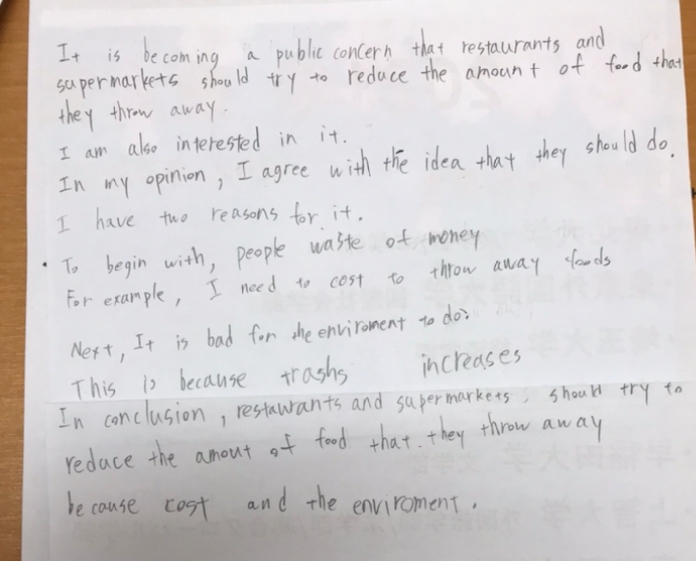 It is becoming a public concern that restaurants and
supermarkets should try to reduce the amount of food that
they throw away.
I am also interested in it.
In my opinion, I agree with the idea that they should do.
I have two reasons for it.
· To begin with, people waste of money
For example, I need to cost to throw away foods
Next, It is bad for the enviroment to do.
This is because trashs increases
In conclusion, restaurants and supermarkets, should try to
reduce the amout of food that they throw away
because cost and the enviroment.